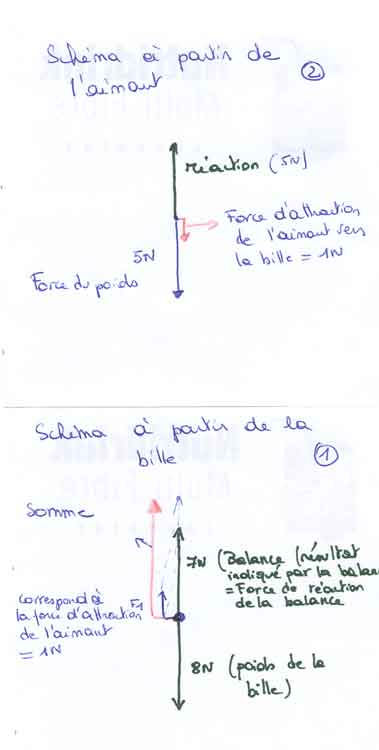 Schéma à partir de
l'aimant
2
réaction (5N)
Force d'attraction
de l'aimant vers
la bille = 1N
5N
Force du poids
Schéma à partir de la
bille
1
Somme
7N (Balance (résultat
indiqué par la balan
= Force de réaction
de la balance
correspond à
la force d'attraction
de l'aimant
= 1N
F1
8N (poids de la
bille)